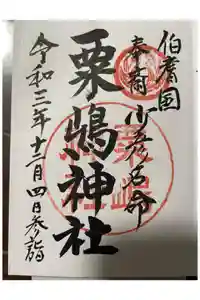 伯耆国
奉斎 少彦名命
粟嶋神社
令和三年十二月四日参詣